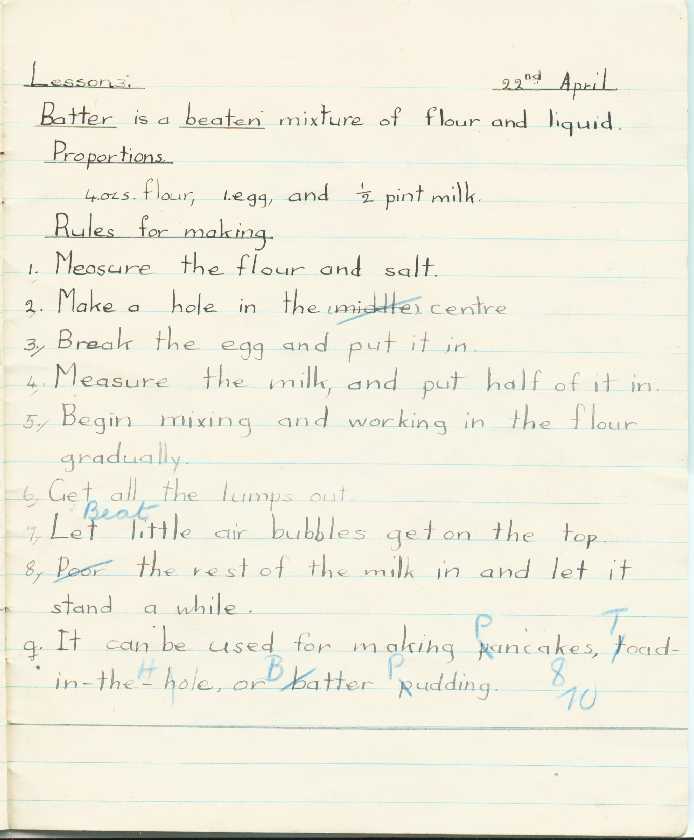 Lesson 3. 22nd April
Batter is a beaten mixture of flour and liquid.
Proportions.
4.ozs. flour, 1.egg, and ½ pint milk.
Rules for making.
1. Measure the flour and salt.
2. Make a hole in the (middle) centre
3, Break the egg and put it in.
4, Measure the milk, and put half of it in.
5, Begin mixing and working in the flour
gradually.
6, Get all the lumps out.
Beat
7, Let little air bubbles get on the top.
8, Poor the rest of the milk in and let it
stand a while.
P T
9. It can be used for making pancakes, toad-
H B P 8
in-the-hole, or batter pudding. 10